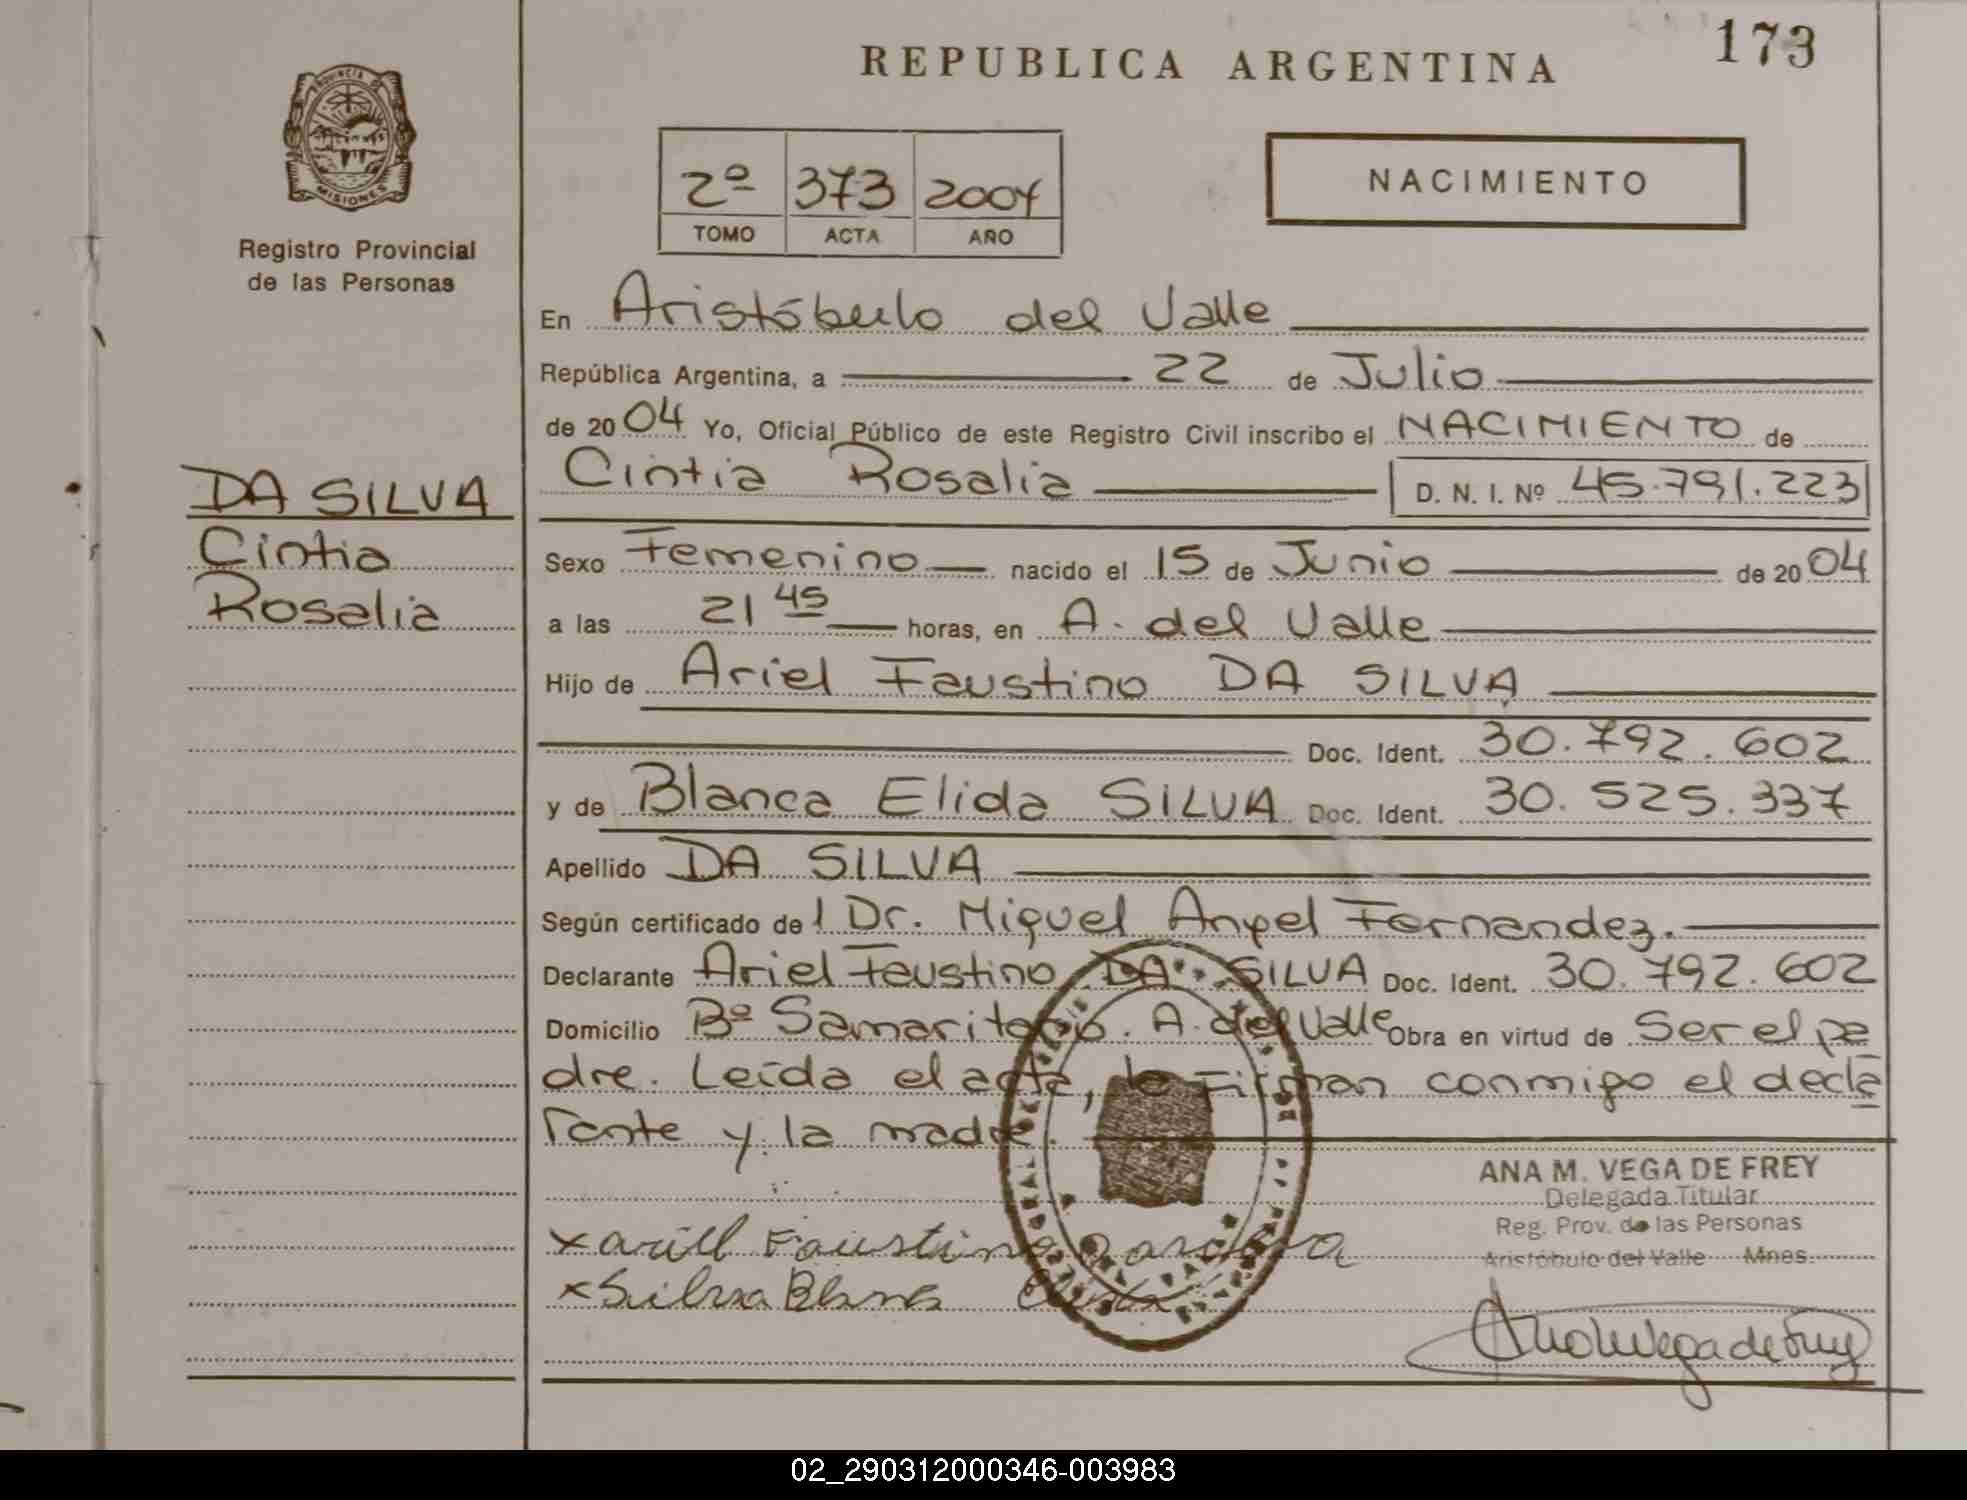 REPUBLICA ARGENTINA
173
PROVINCIA DE
MISIONES
Registro Provincial
de las Personas
2º 373 2004
TOMO ACTA AÑO
NACIMIENTO
En Aristóbulo del Valle
República Argentina, a 22 de Julio
de 2004 Yo, Oficial Público de este Registro Civil inscribo el NACIMIENTO de
Cintia Rosalia D. N. I. Nº 45.791.223
DA SILVA
Cintia
Rosalia
Sexo Femenino nacido el 15 de Junio de 2004
a las 21 45 horas, en A. del Valle
Hijo de Ariel Faustino DA SILVA
Doc. Ident. 30.792.602
y de Blanca Elida SILVA Doc. Ident. 30.525.337
Apellido DA SILVA
Según certificado del Dr. Miguel Angel Fernandez.
Declarante Ariel Faustino DA SILVA Doc. Ident. 30.792.602
Domicilio Bº Samaritano. A. del Valle Obra en virtud de Ser el pa
dre. Leída el acta, la Firman conmigo el decla
rante y la madre.
ANA M. VEGA DE FREY
Delegada Titular
Reg. Prov. de las Personas
Aristóbulo del Valle Mnes.
x Faustino
x Silva Blanca
02_290312000346-003983